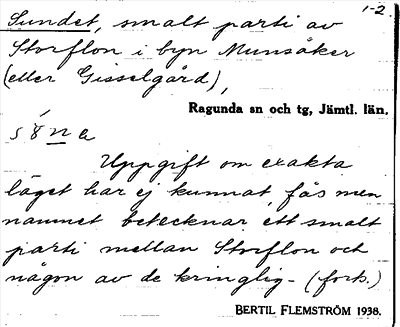 1-2.
Sundet, smalt parti av
Storflon i byn Munsåker
(eller Gisselgård),
Ragunda sn och tg, Jämtl. län.
Uppgift om exakta
läget har ej kunnat fås men
namnet betecknar ett smalt
parti mellan Storflon och
någon av de kringlig- (forts.)
BERTIL FLEMSTRÖM 1938.